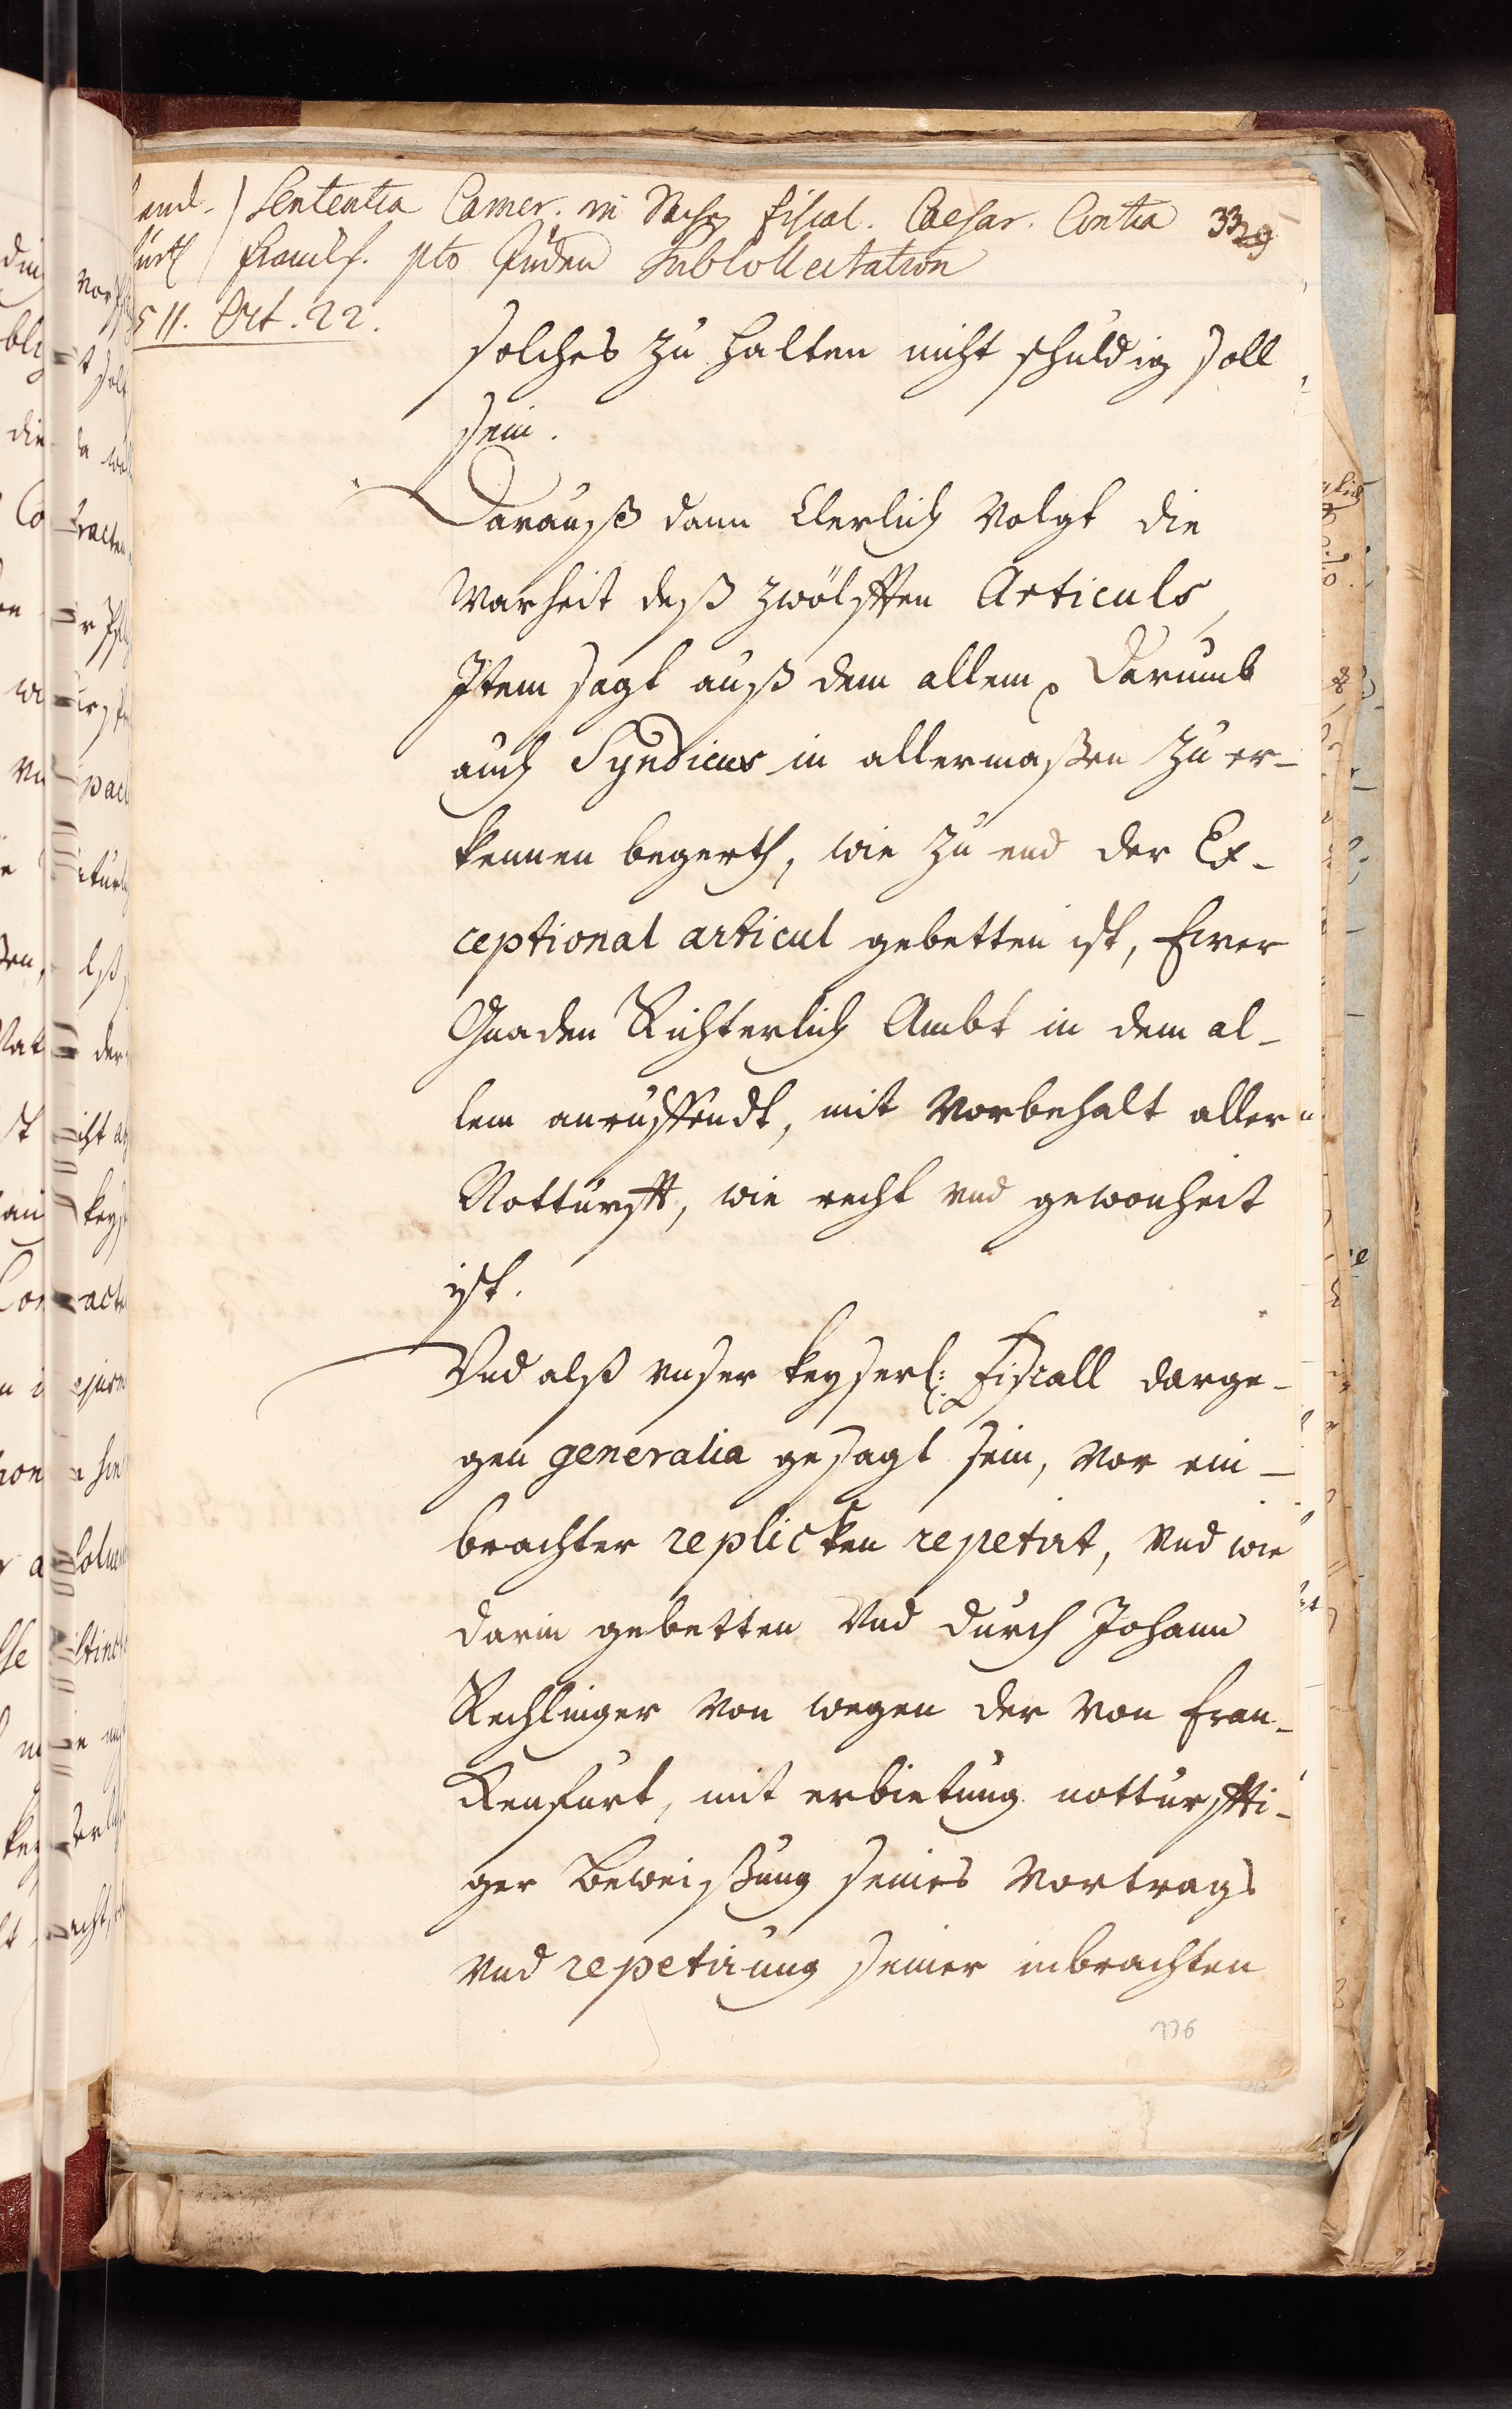 Sententia Camer. in Sachen fiscal. Caesar. Contra 339
Francks. pto Juden Subcollectation
511. Oct. 22.
solches zu halten nicht schuldig soll
sein.
Darauß dann Clerlich Volgt die
Warheit deß zwölfften Articuls,
Item sagt auß dem allem, Darumb
auch Syndicus in allermaßen zu er-
kennen begerth, wie zu end der Ex-
ceptional articul gebetten ist, Ewer
Gnaden Richterlich Ambt in dem al-
lem anruffendt, mit Vorbehalt aller
Notturfft, wie recht vnd gewonheit
ist.
Vnd alß vnser keyserl: Fiscall darge-
gen generalia gesagt sein, vor ein-
brachter replicken repetirt, Vnd wie
darin gebetten Vnd durch Johann
Rechlinger Von wegen der Von Fran-
ckenfurt, mit erbietung notturffti-
ger Beweißung seines Vortrags
Vnd repetirung seiner inbrachten
776